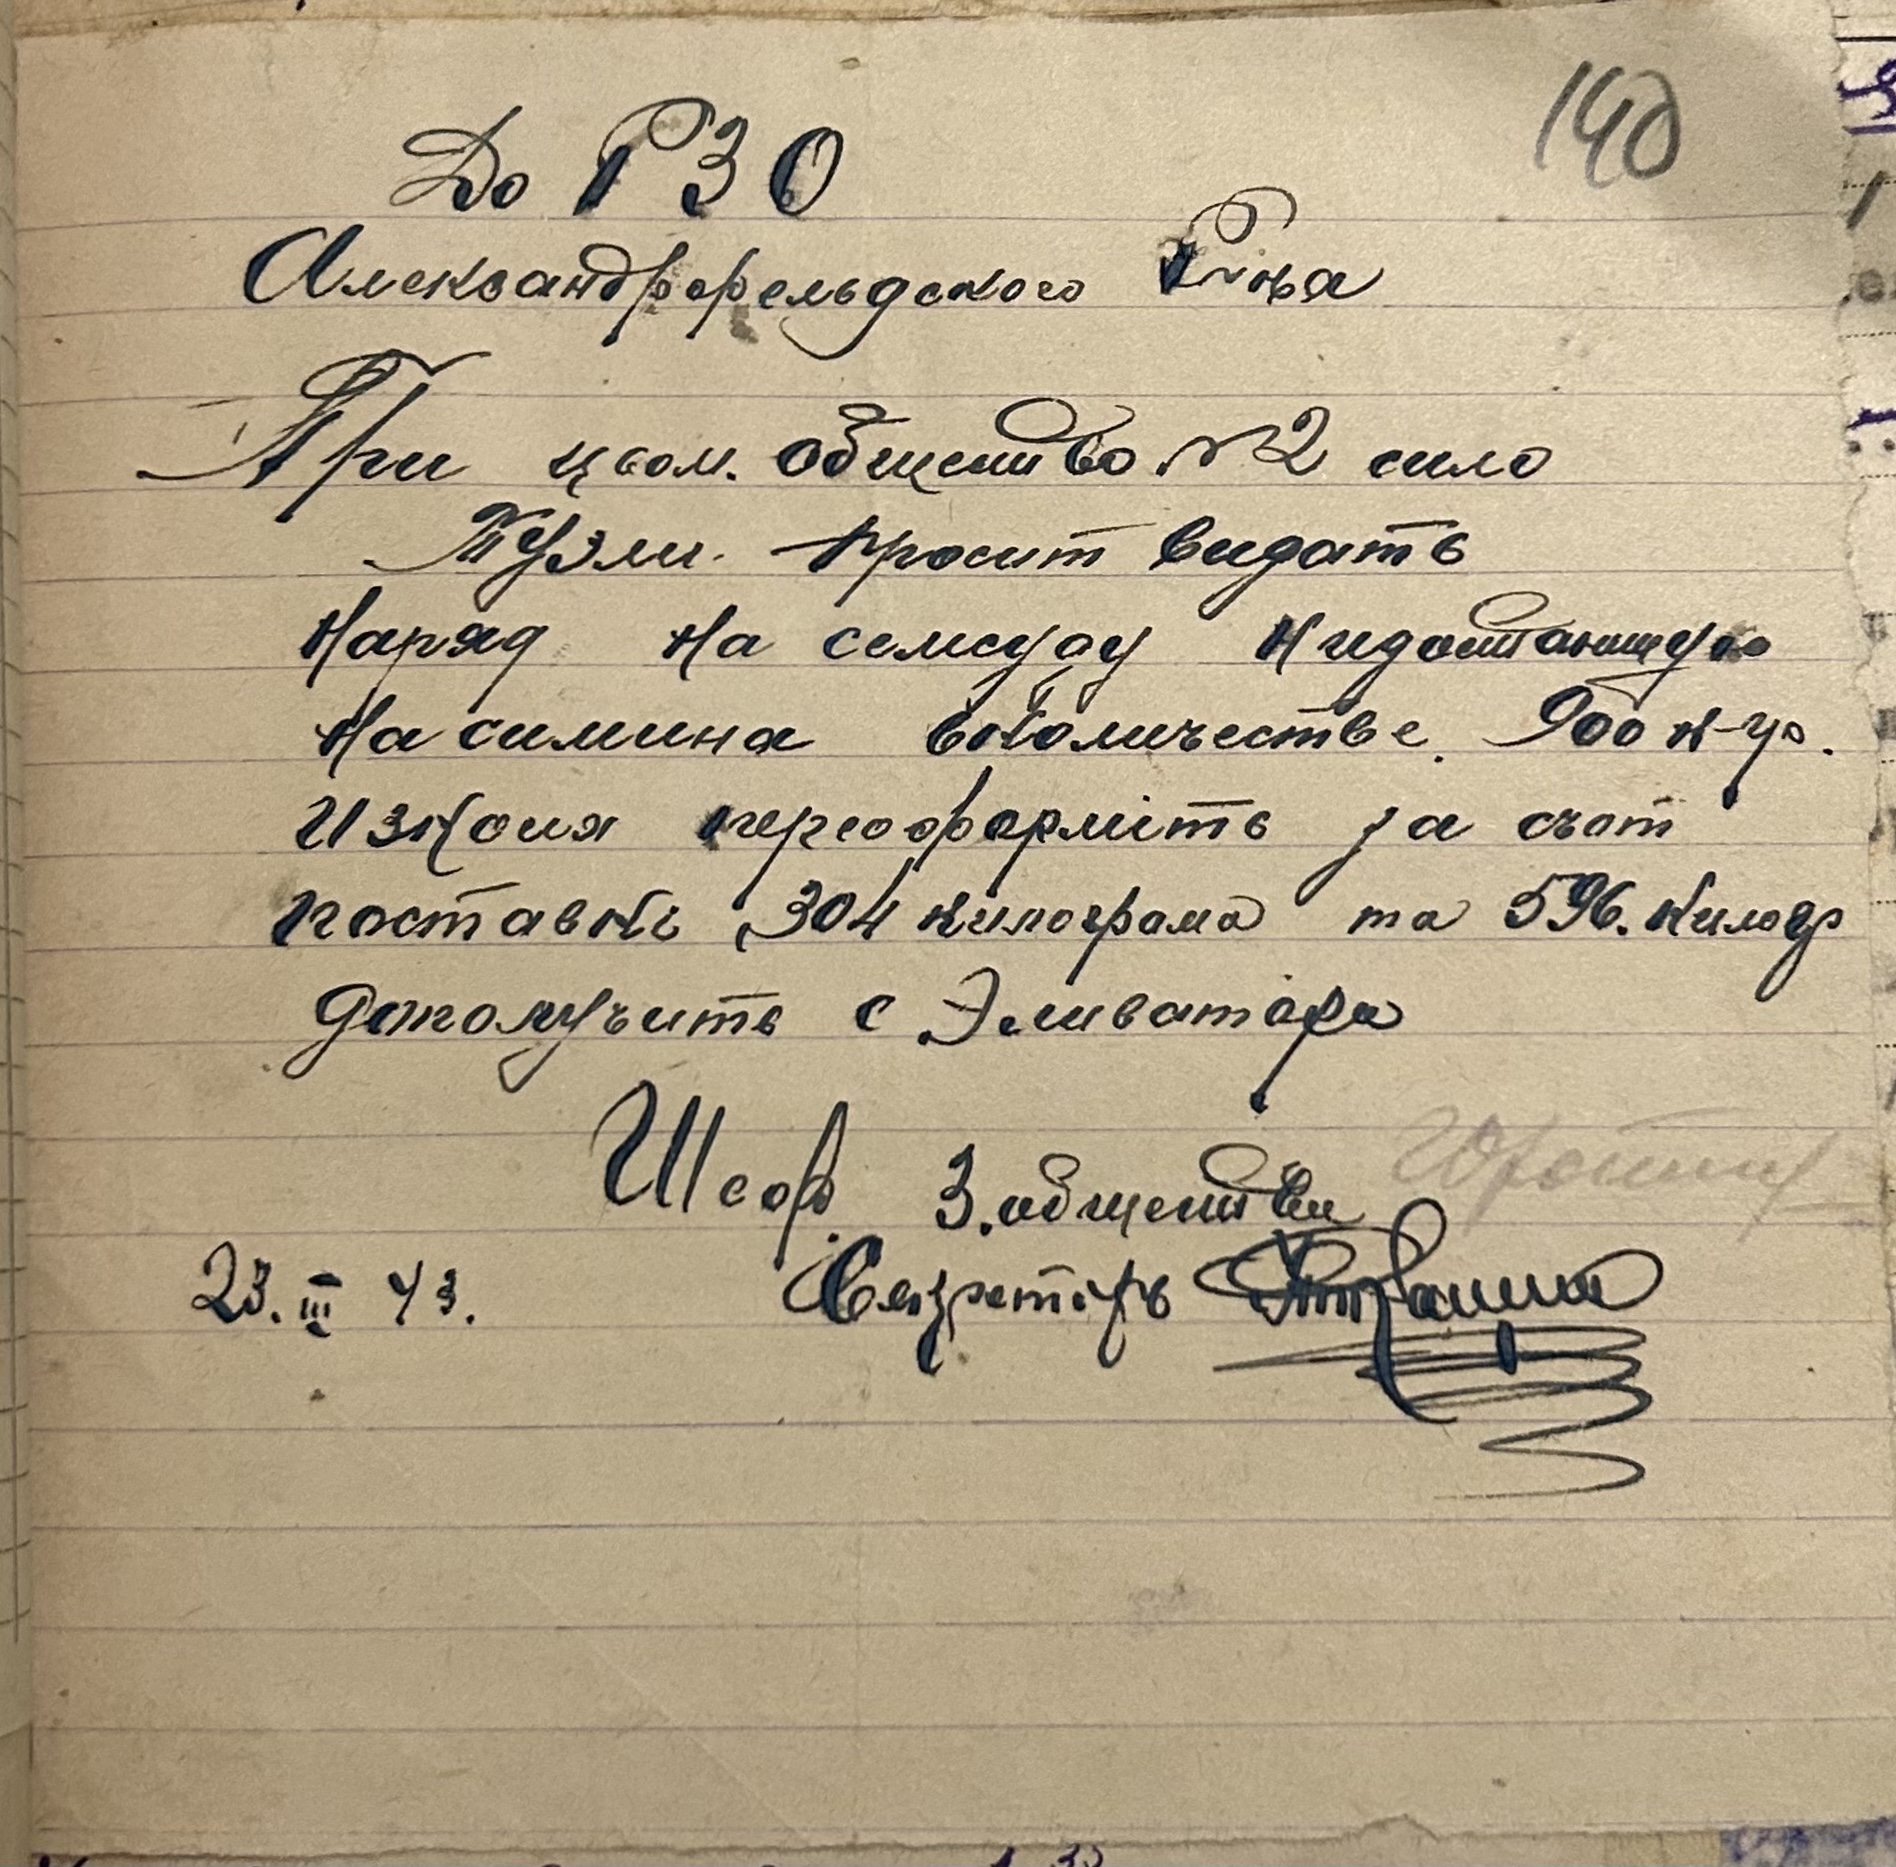 140
До РЗО
Александрфельдского Р-на
При цьом. общество №2 сило
Тузли. просит видать
Наряд на семсуду нидостающую
На симина вколичестве. 900 к-гр.
Изкоия переоформіть за счот
поставкі 304 килограма та 596. Килогр
дополучить с Эливатора
Шеф. З.общества
23.III 43. Секретарь